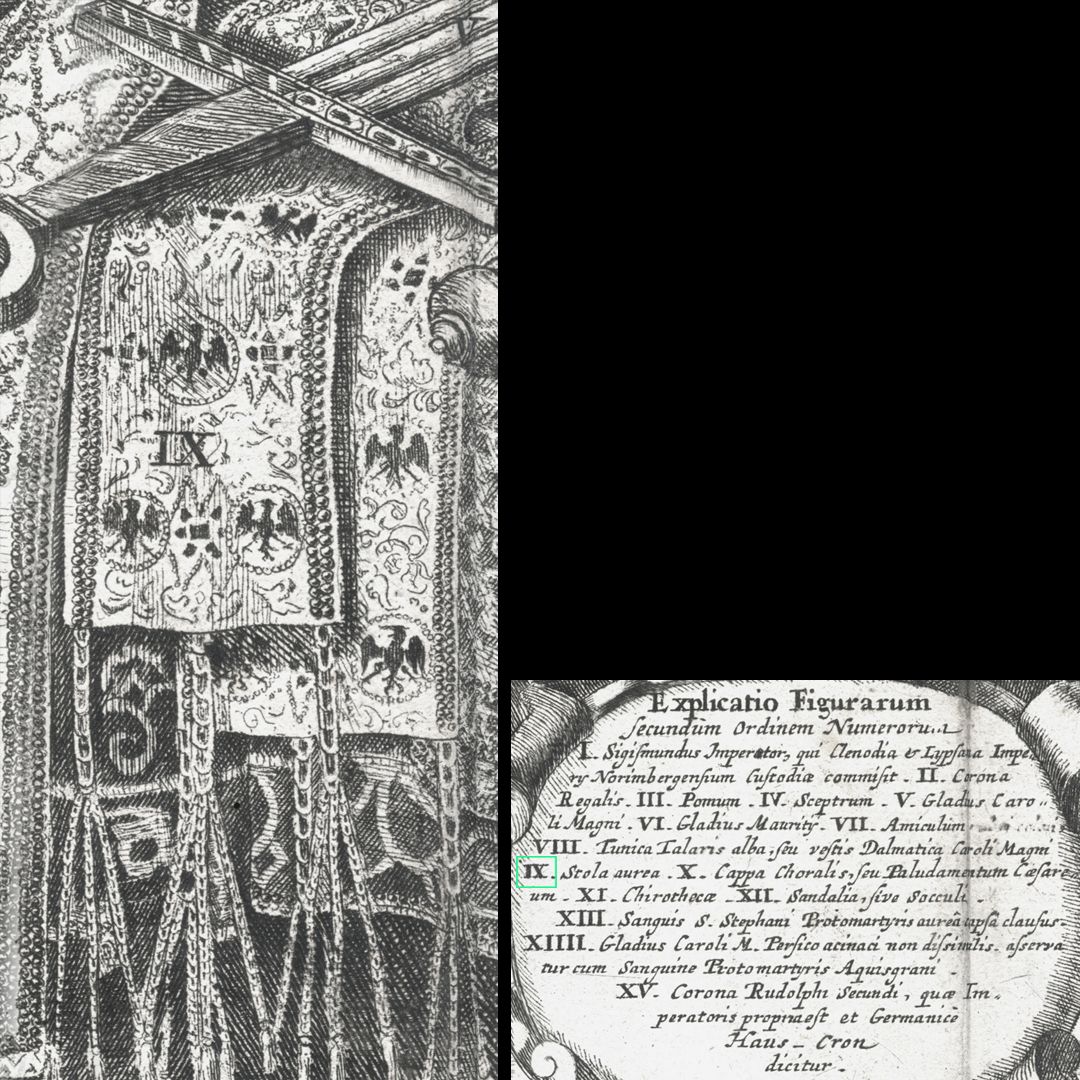 IX
Explicatio Figurarum
secundum Ordinem Numerorum
I. Sigismundus Imperator, qui Clenodia &
ry Norimbergensium Custodiæ commisit. II. Corona
Regalis. III. Pomum. IV. Sceptrum. V. Gladus Caro-
li Magni. VI. Gladius Maurity. VII. Amiculum
VIII. Tunica Talaris alba, seu vestis Dalmatica Caroli Magni
IX. Stola aurea. X. Cappa Choralis, seu Paludamentum Cæsare
um. XI. Chirothecæ XII. Sandalia, sive Socculi.
XIII. Sanguis S. Stephani Protomartyris aureâ capsâ clausus.
XIIII. Gladius Caroli M. Persico acinaci non dissimilis. asserva
tur cum Sanguine Protomartyris Aquisgrani.
XV. Corona Rudolphi Secundi, quæ Im-
peratoris propria est et Germanicè
Haus-Cron
dicitur.